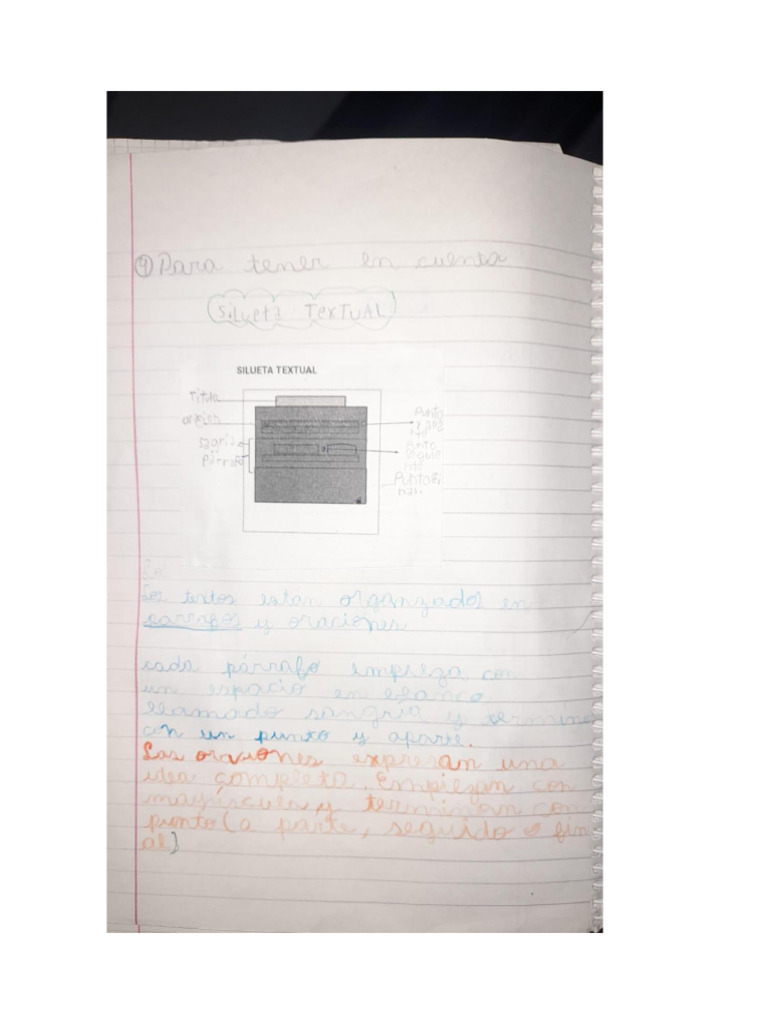 ④ Para tener en cuenta
SiLueta TexTUAL
SILUETA TEXTUAL
Titulo
sagria
párrafo
Punto
y apa
rte
Punto
Punto Fi
nal.
Lo
Los textos están organizados en
y oraciones
cada párrafo empieza con
un espacio en blanco
llamado sangria y termina
con un punto y aparte.
Las oraciones expresan una
idea completa. Empiezan con
mayúscula y terminan con
punto (a parte, seguido o fin
al)